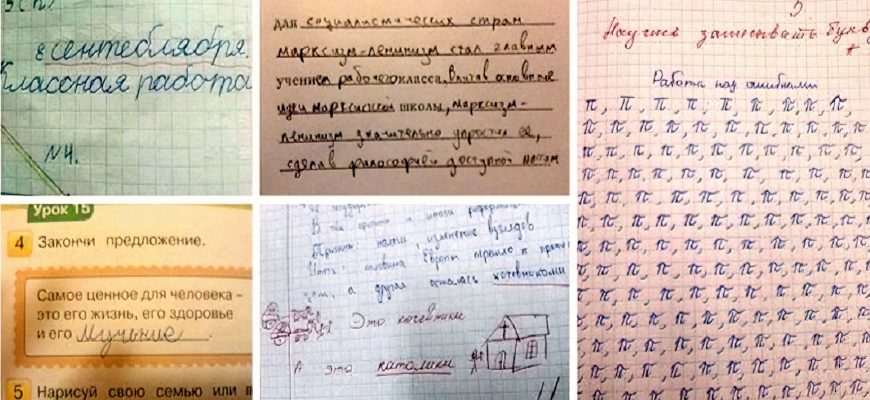 8 сентеблября.
Классная работа
№4.
для социалистических стран
марксизм-ленинизм стал главным
учением рабочего класса. Впитав основные
идеи марксисткой школы, марксизм-
ленинизм значительно упростил её,
сделав философией доступной массам
Научись записывать букву
Работа над ошибками
π, π, π, π, π, π, π, π, π,
π, π, π, π, π, π, π, π, π, π,
π, π, π, π, π, π, π, π, π, π,
π, π, π, π, π, π, π, π, π, π,
π, π, π, π, π, π, π, π, π, π,
π, π, π, π, π, π, π, π, π, π,
π, π, π, π, π, π, π, π, π, π,
π, π, π, π, π, π, π, π, π, π,
π, π, π, π, π, π, π, π, π, π,
π, π, π, π, π, π, π, π, π, π,
π, π, π, π, π, π, π, π, π, π,
π, π, π, π, π, π, π, π, π, π,
π, π, π, π, π, π, π, π, π, π,
Урок 15
4 Закончи предложение.
Самое ценное для человека -
это его жизнь, его здоровье
и его мучение.
5 Нарисуй свою семью или
изменение взглядов
Европы
а другая осталась кочевниками
Это кочевники
А это католики